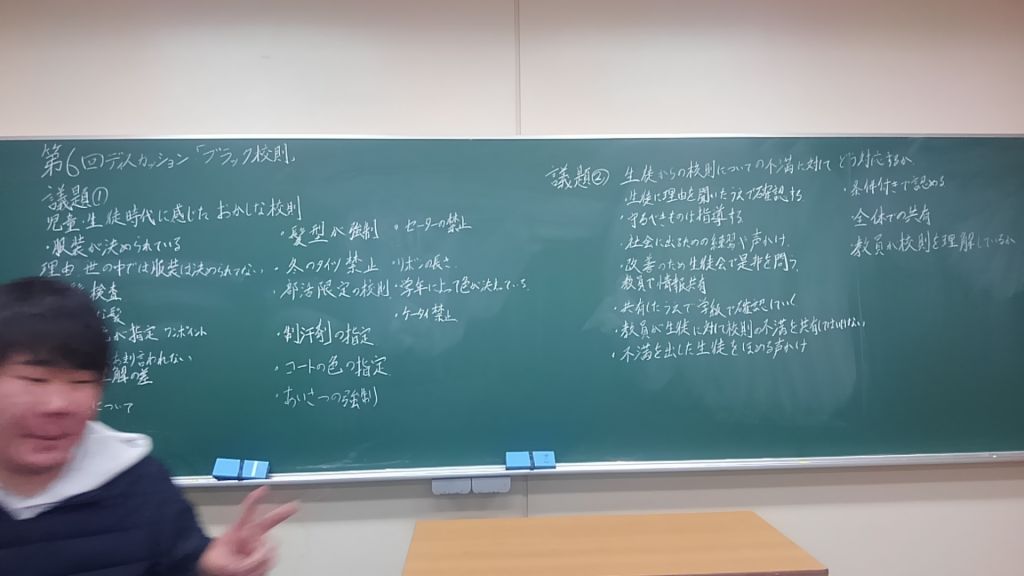 第6回ディスカッション「ブラック校則」
議題①
児童・生徒時代に感じた おかしな校則
・服装が決められている
理由 世の中では服装は決められてない
検査
髪
が指定 ワンポイント
言われない
解の差
について
・髪型が強制
・冬のタイツ禁止
・部活限定の校則
・制汗剤の指定
・コートの色の指定
・あいさつの強制
・セーターの禁止
・リボンの長さ
・学年によって色が決まっている
・ケータイ禁止
議題② 生徒からの校則についての不満に対して どう対応するか
・生徒に理由を聞いたうえで確認する
・守るべきものは指導する
・社会に出るための練習 声かけ
・改善のため生徒会で是非を問う
・教員で情報共有
・共有したうえで学級で確認していく
・教員が生徒に対して校則の不満を共有してはいけない
・不満を出した生徒をほめる声かけ
・条件付きで認める
・全体での共有
・教員が校則を理解しているか